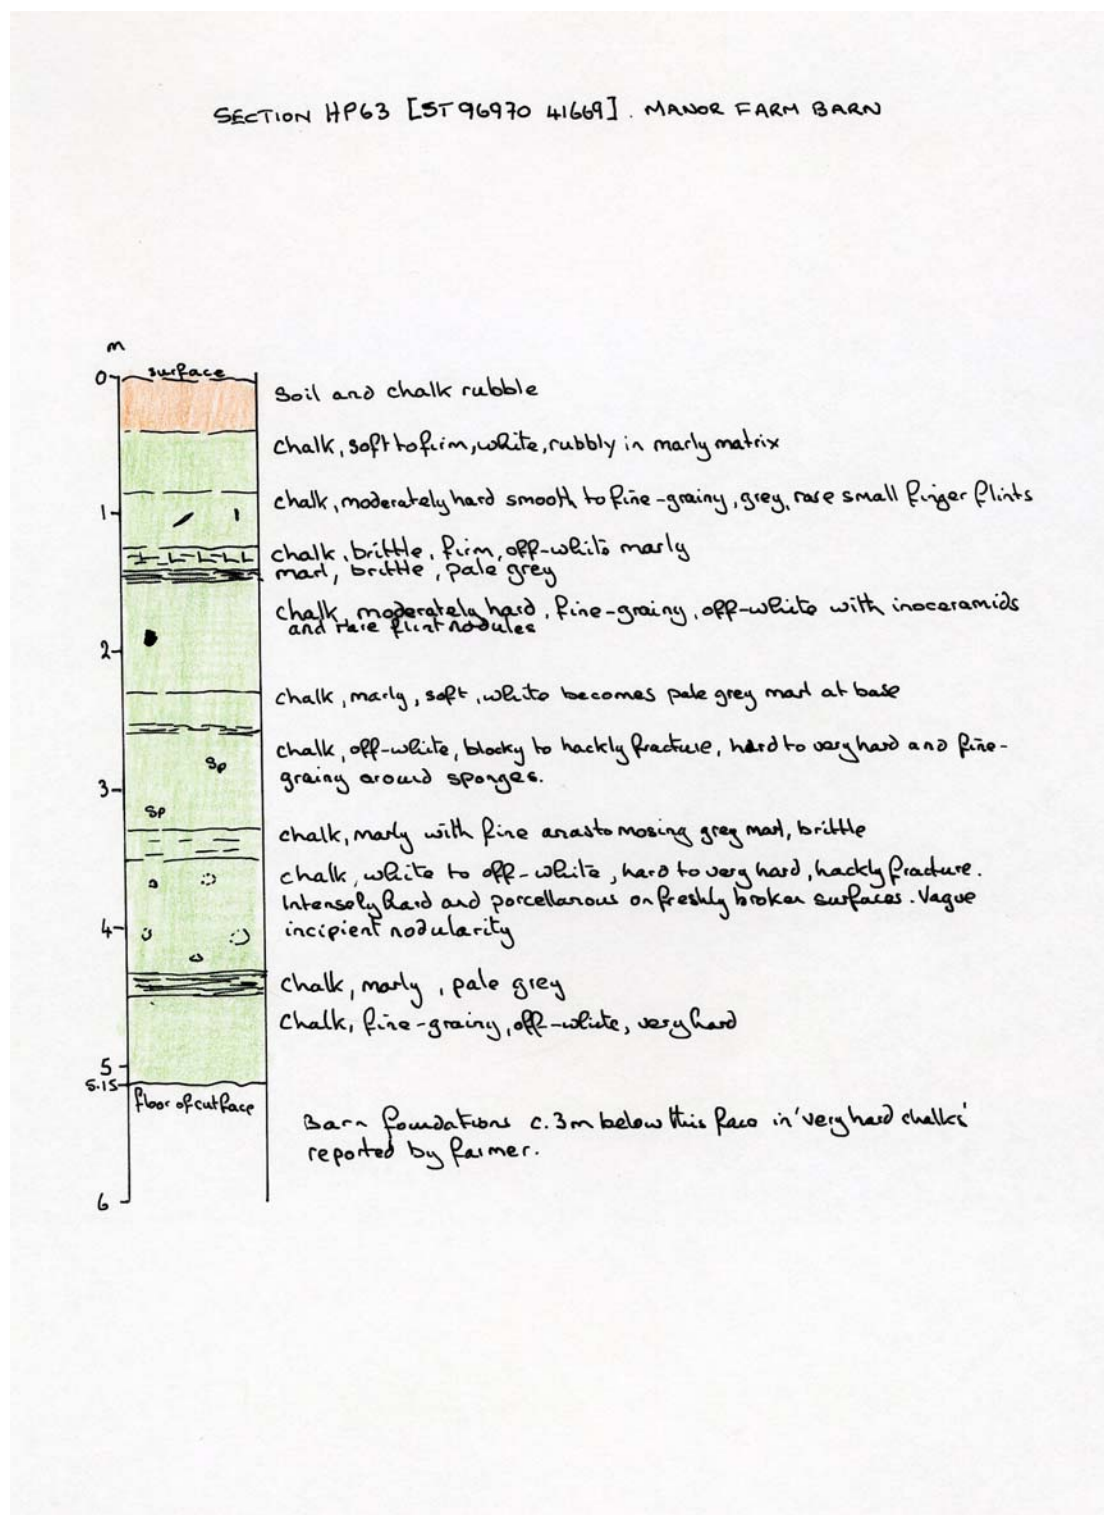 SECTION HP63 [ST 96970 41669]. MANOR FARM BARN
m
0
surface
Soil and chalk rubble
chalk, soft to firm, white, rubbly in marly matrix
chalk, moderately hard smooth to fine-grainy, grey, rare small finger flints
1
chalk, brittle, firm, off-white marly
marl, brittle, pale grey
chalk, moderately hard, fine-grainy, off-white with inoceramids
and rare flint nodules
2
chalk, marly, soft, white becomes pale grey marl at base
chalk, off-white, blocky to hackly fracture, hard to very hard and fine-
grainy around sponges.
Sp
3
Sp
chalk, marly with fine anastomosing grey marl, brittle
chalk, white to off-white, hard to very hard, hackly fracture.
Intensely hard and porcellanous on freshly broken surfaces. Vague
incipient nodularity
4
chalk, marly, pale grey
Chalk, fine-grainy, off-white, very hard
5
5.15
floor of cut face
Barn foundations c. 3m below this face in 'very hard chalks'
reported by farmer.
6